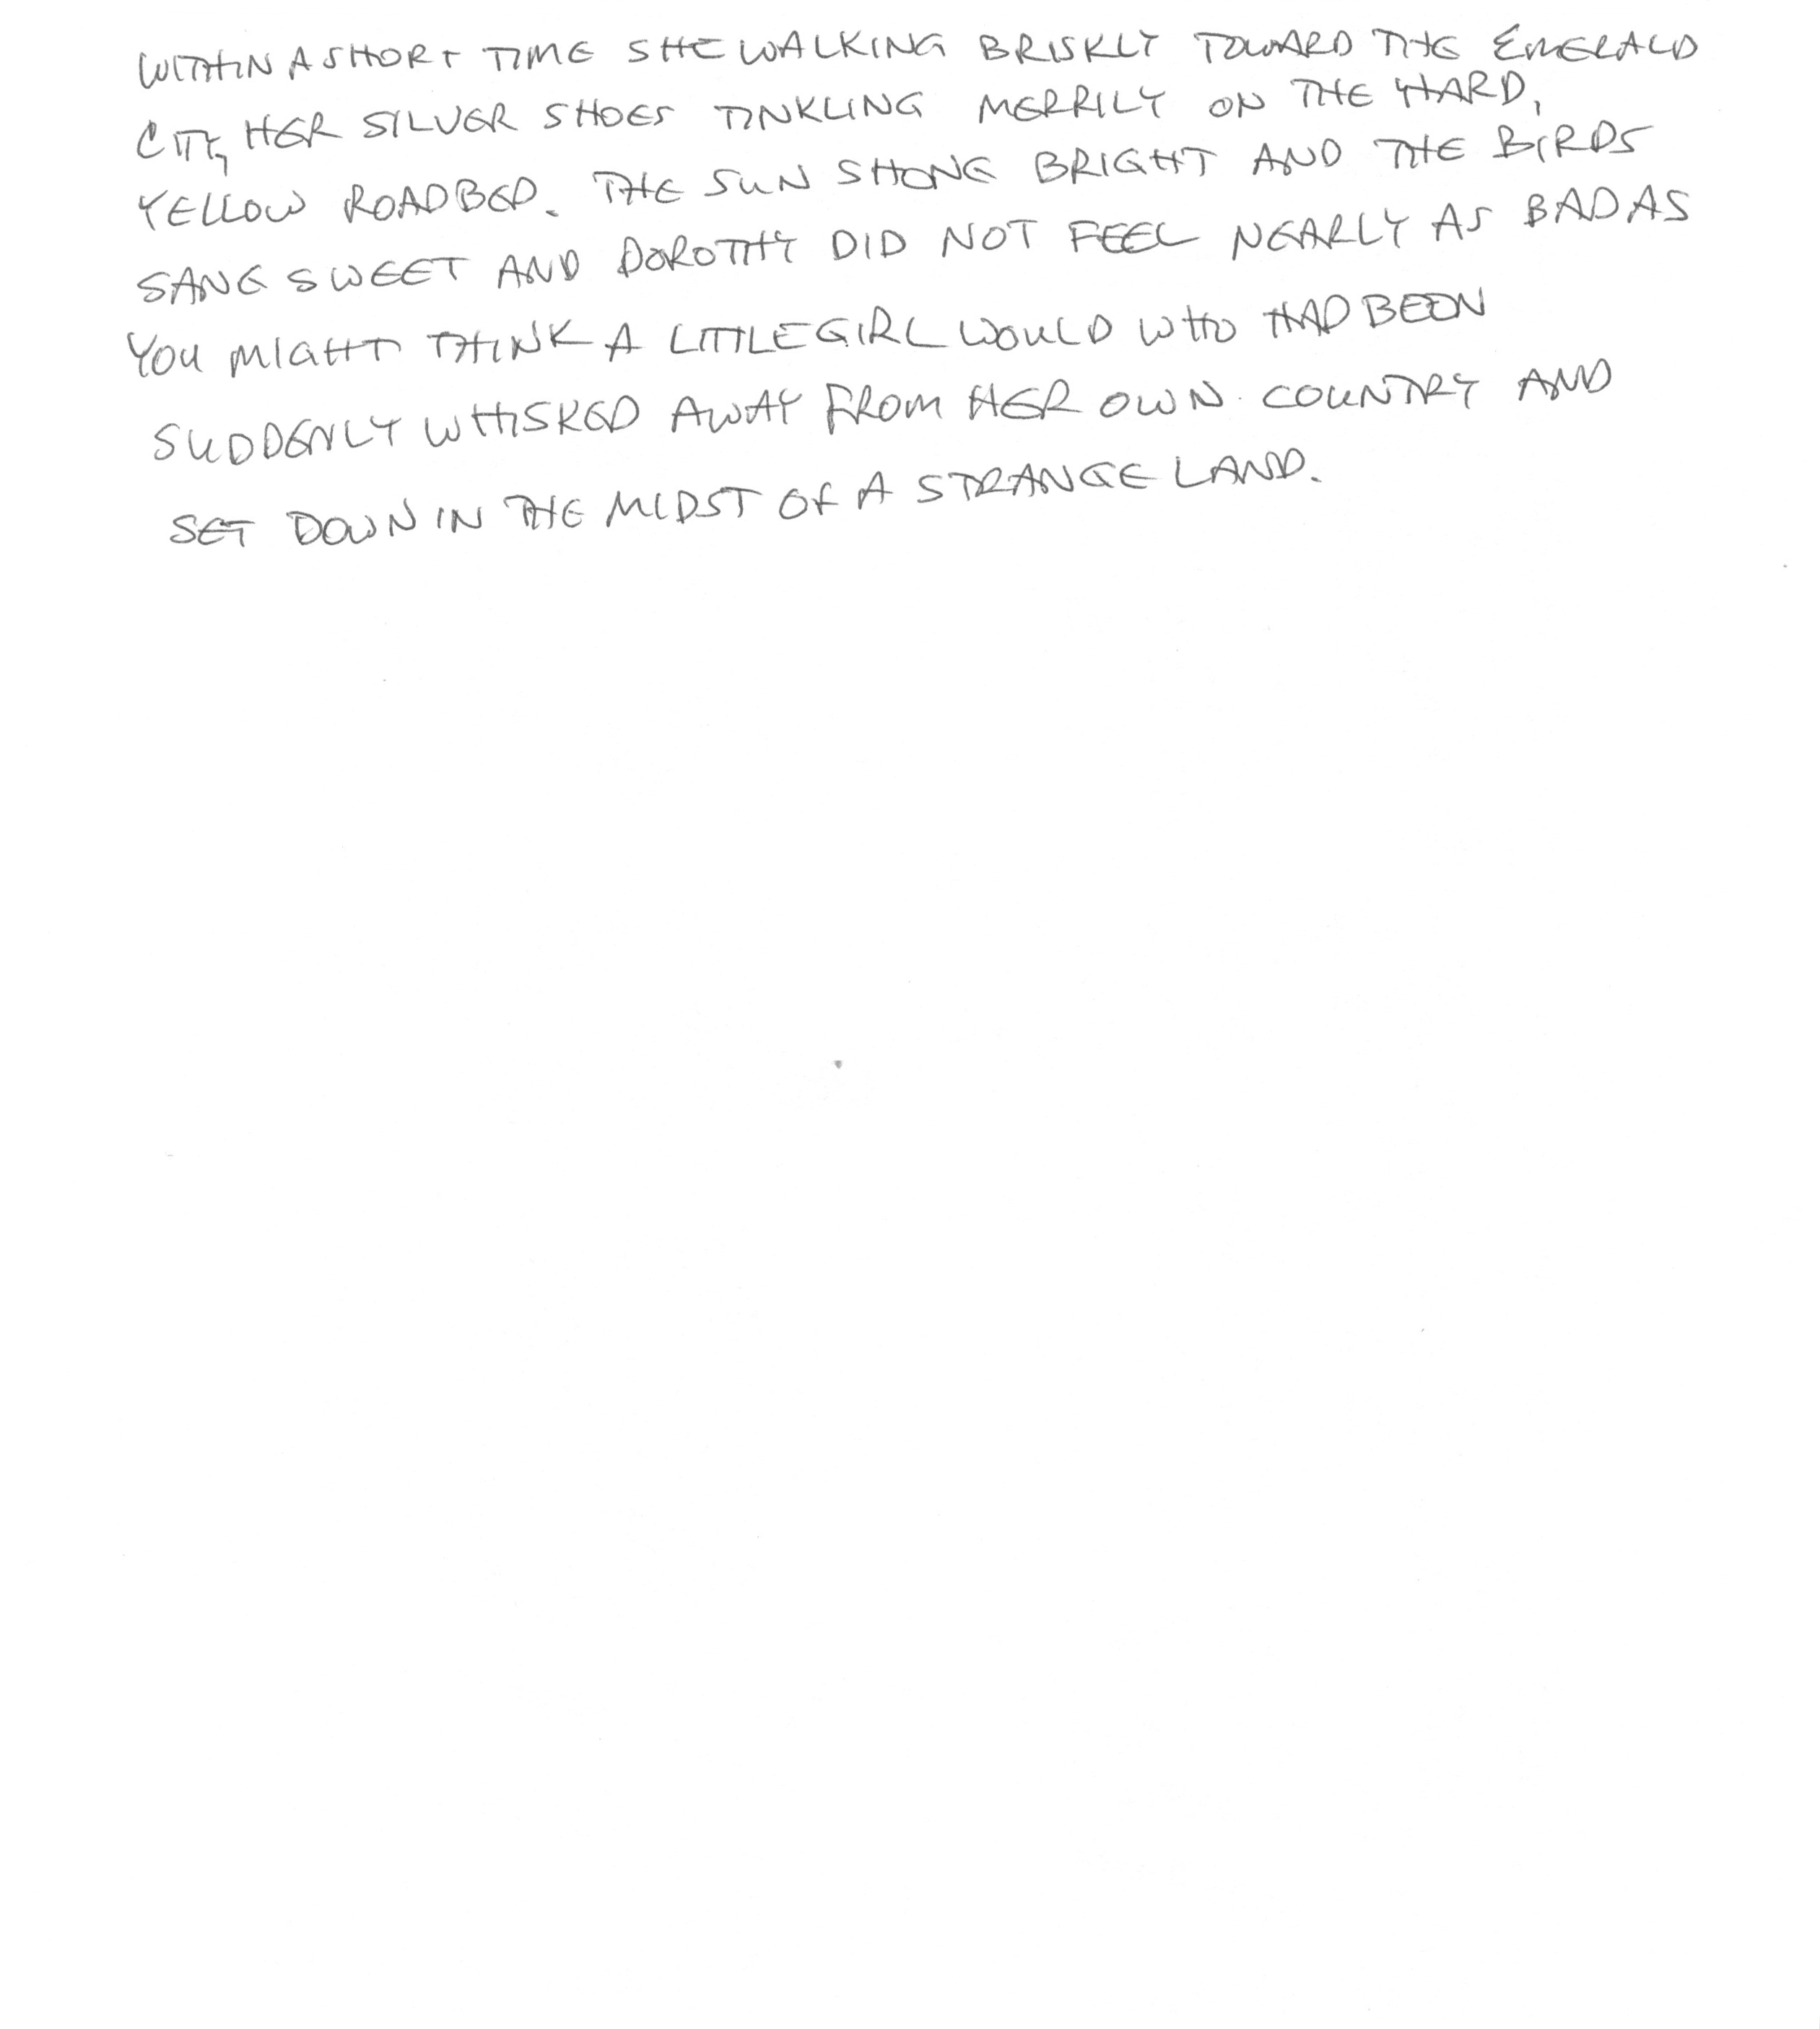 WITHIN A SHORT TIME SHE WALKING BRISKLY TOWARD THE EMERALD
CITY, HER SILVER SHOES TINKLING MERRILY ON THE HARD,
YELLOW ROADBED. THE SUN SHONE BRIGHT AND THE BIRDS
SANG SWEET AND DOROTHY DID NOT FEEL NEARLY AS BAD AS
YOU MIGHT THINK A LITTLE GIRL WOULD WHO HAD BEEN
SUDDENLY WHISKED AWAY FROM HER OWN COUNTRY AND
SET DOWN IN THE MIDST OF A STRANGE LAND.